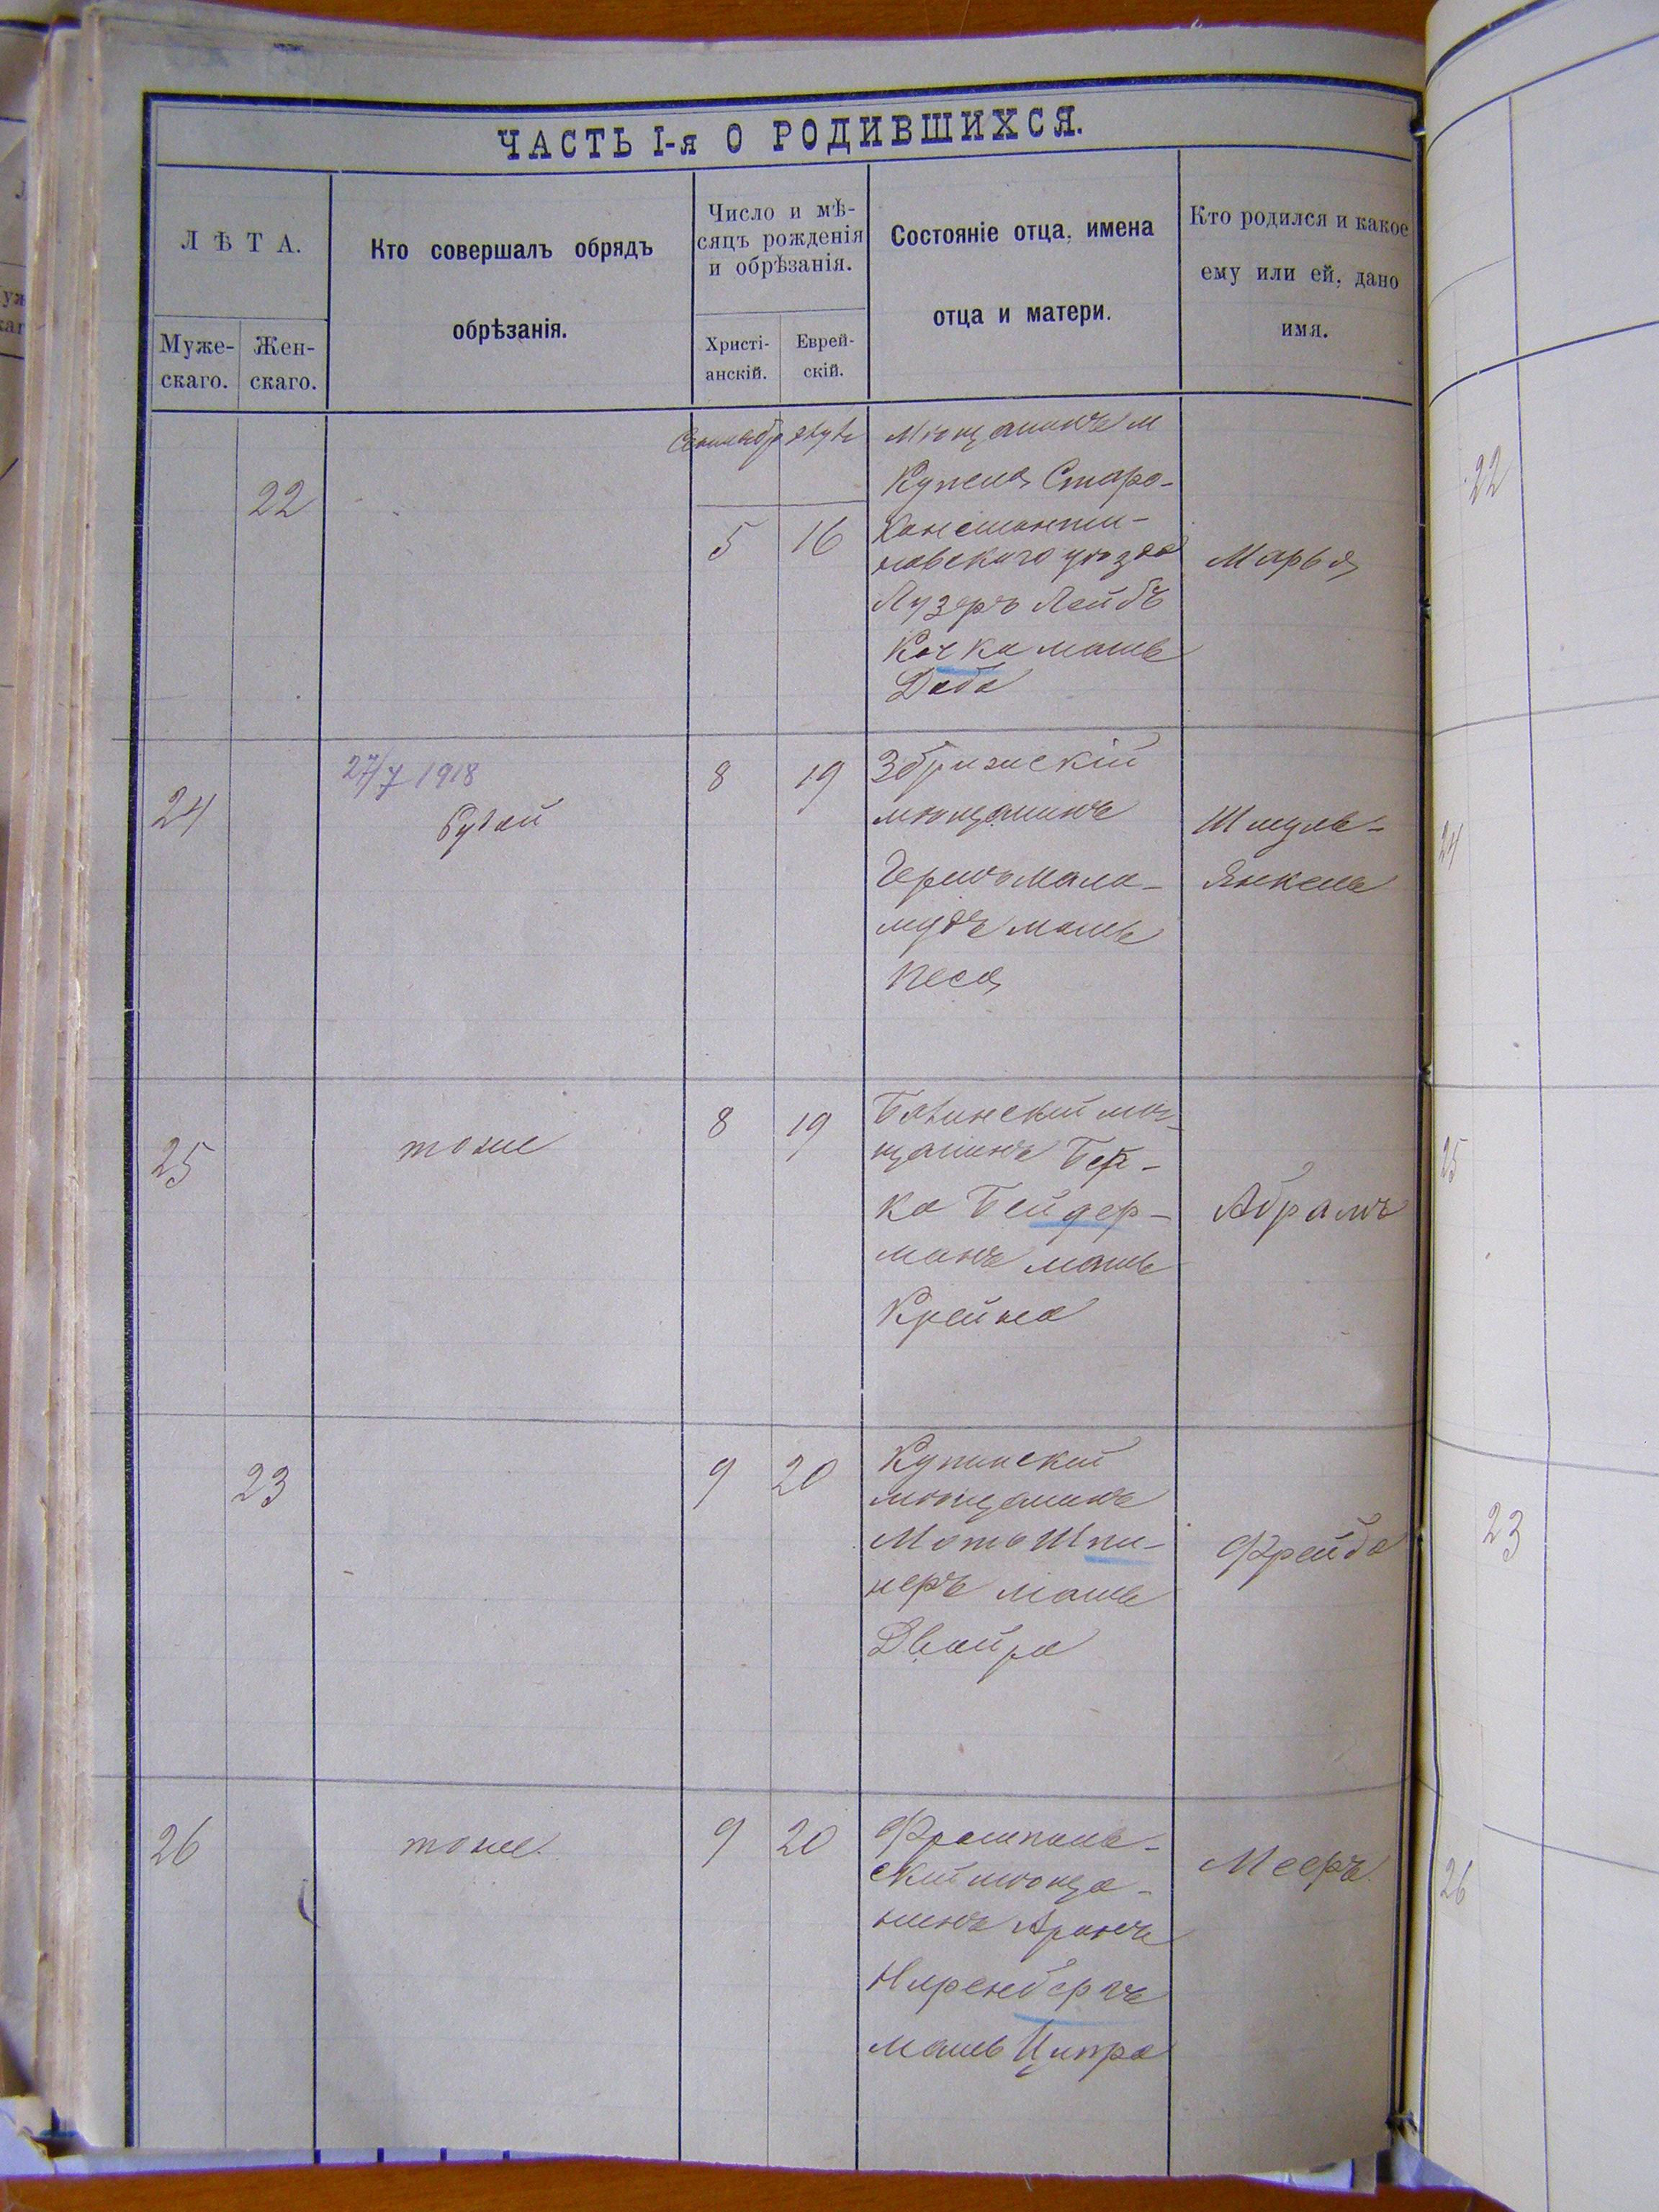 ЧАСТЬ I-я О РОДИВШИХСЯ.
ЛѢТА.
Муже-
скаго.
Жен-
скаго.
Кто совершалъ обрядъ
обрѣзанія.
Число и мѣ-
сяцъ рожденія
и обрѣзанія.
Христі-
анскій.
Еврей-
скій.
Состояніе отца, имена
отца и матери.
Кто родился и какое
ему или ей, дано
имя.
22
5
16
мѣщанинъ м
Купеля Старо-
Константи-
новскаго уѣзда
Лузеръ Лейбъ
Кочка мать
Доба
Марья
24
27/7 1918
8
19
Збрижскій
мѣщанинъ
Гершъ Мала-
мудъ мать
Песя
Шмуль-
Янкель
25
тоже
8
19
мѣ-
щанинъ Бер-
ко Бейдер-
манъ мать
Крейна
Абрамъ
23
9
20
Купинскій
мѣщанинъ
Моть Шпи-
неръ мать
Двойра
Фрейда
26
тоже
9
20
Фрампаль-
скій мѣща-
нинъ Аронъ
Ниренбергъ
мать Ципра
Мееръ
22
24
25
23
26